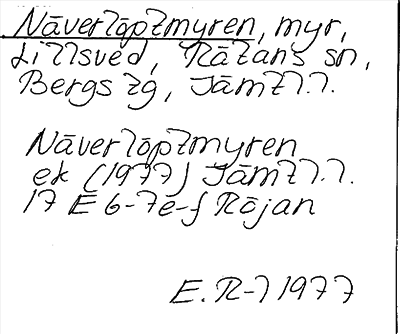 Näverlöptmyren, myr,
Lillsved, Rätans sn,
Bergs tg, Jämtl.l.
Näverlöptmyren
ek (1977) Jämtl.l.
17 E 6-7e-f Röjan
E.R-l 1977